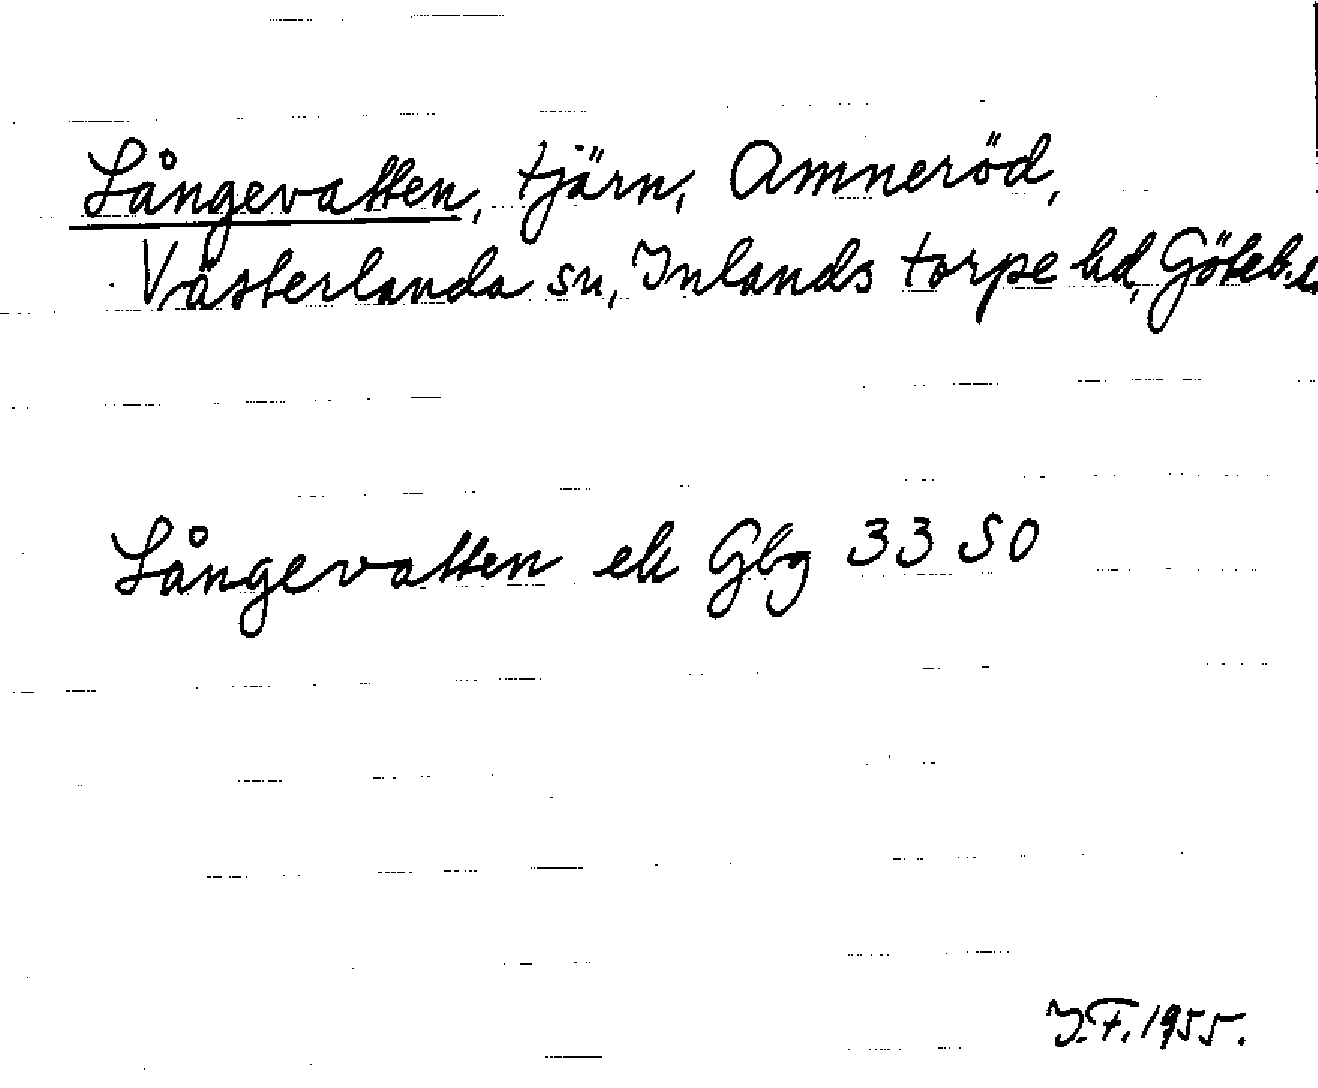 Långevatten, tjärn, Amneröd,
Västerlanda sn, Inlands torpe hd, Göteb. l.
Långevatten ek Gbg 33 SO
I.F. 1955.